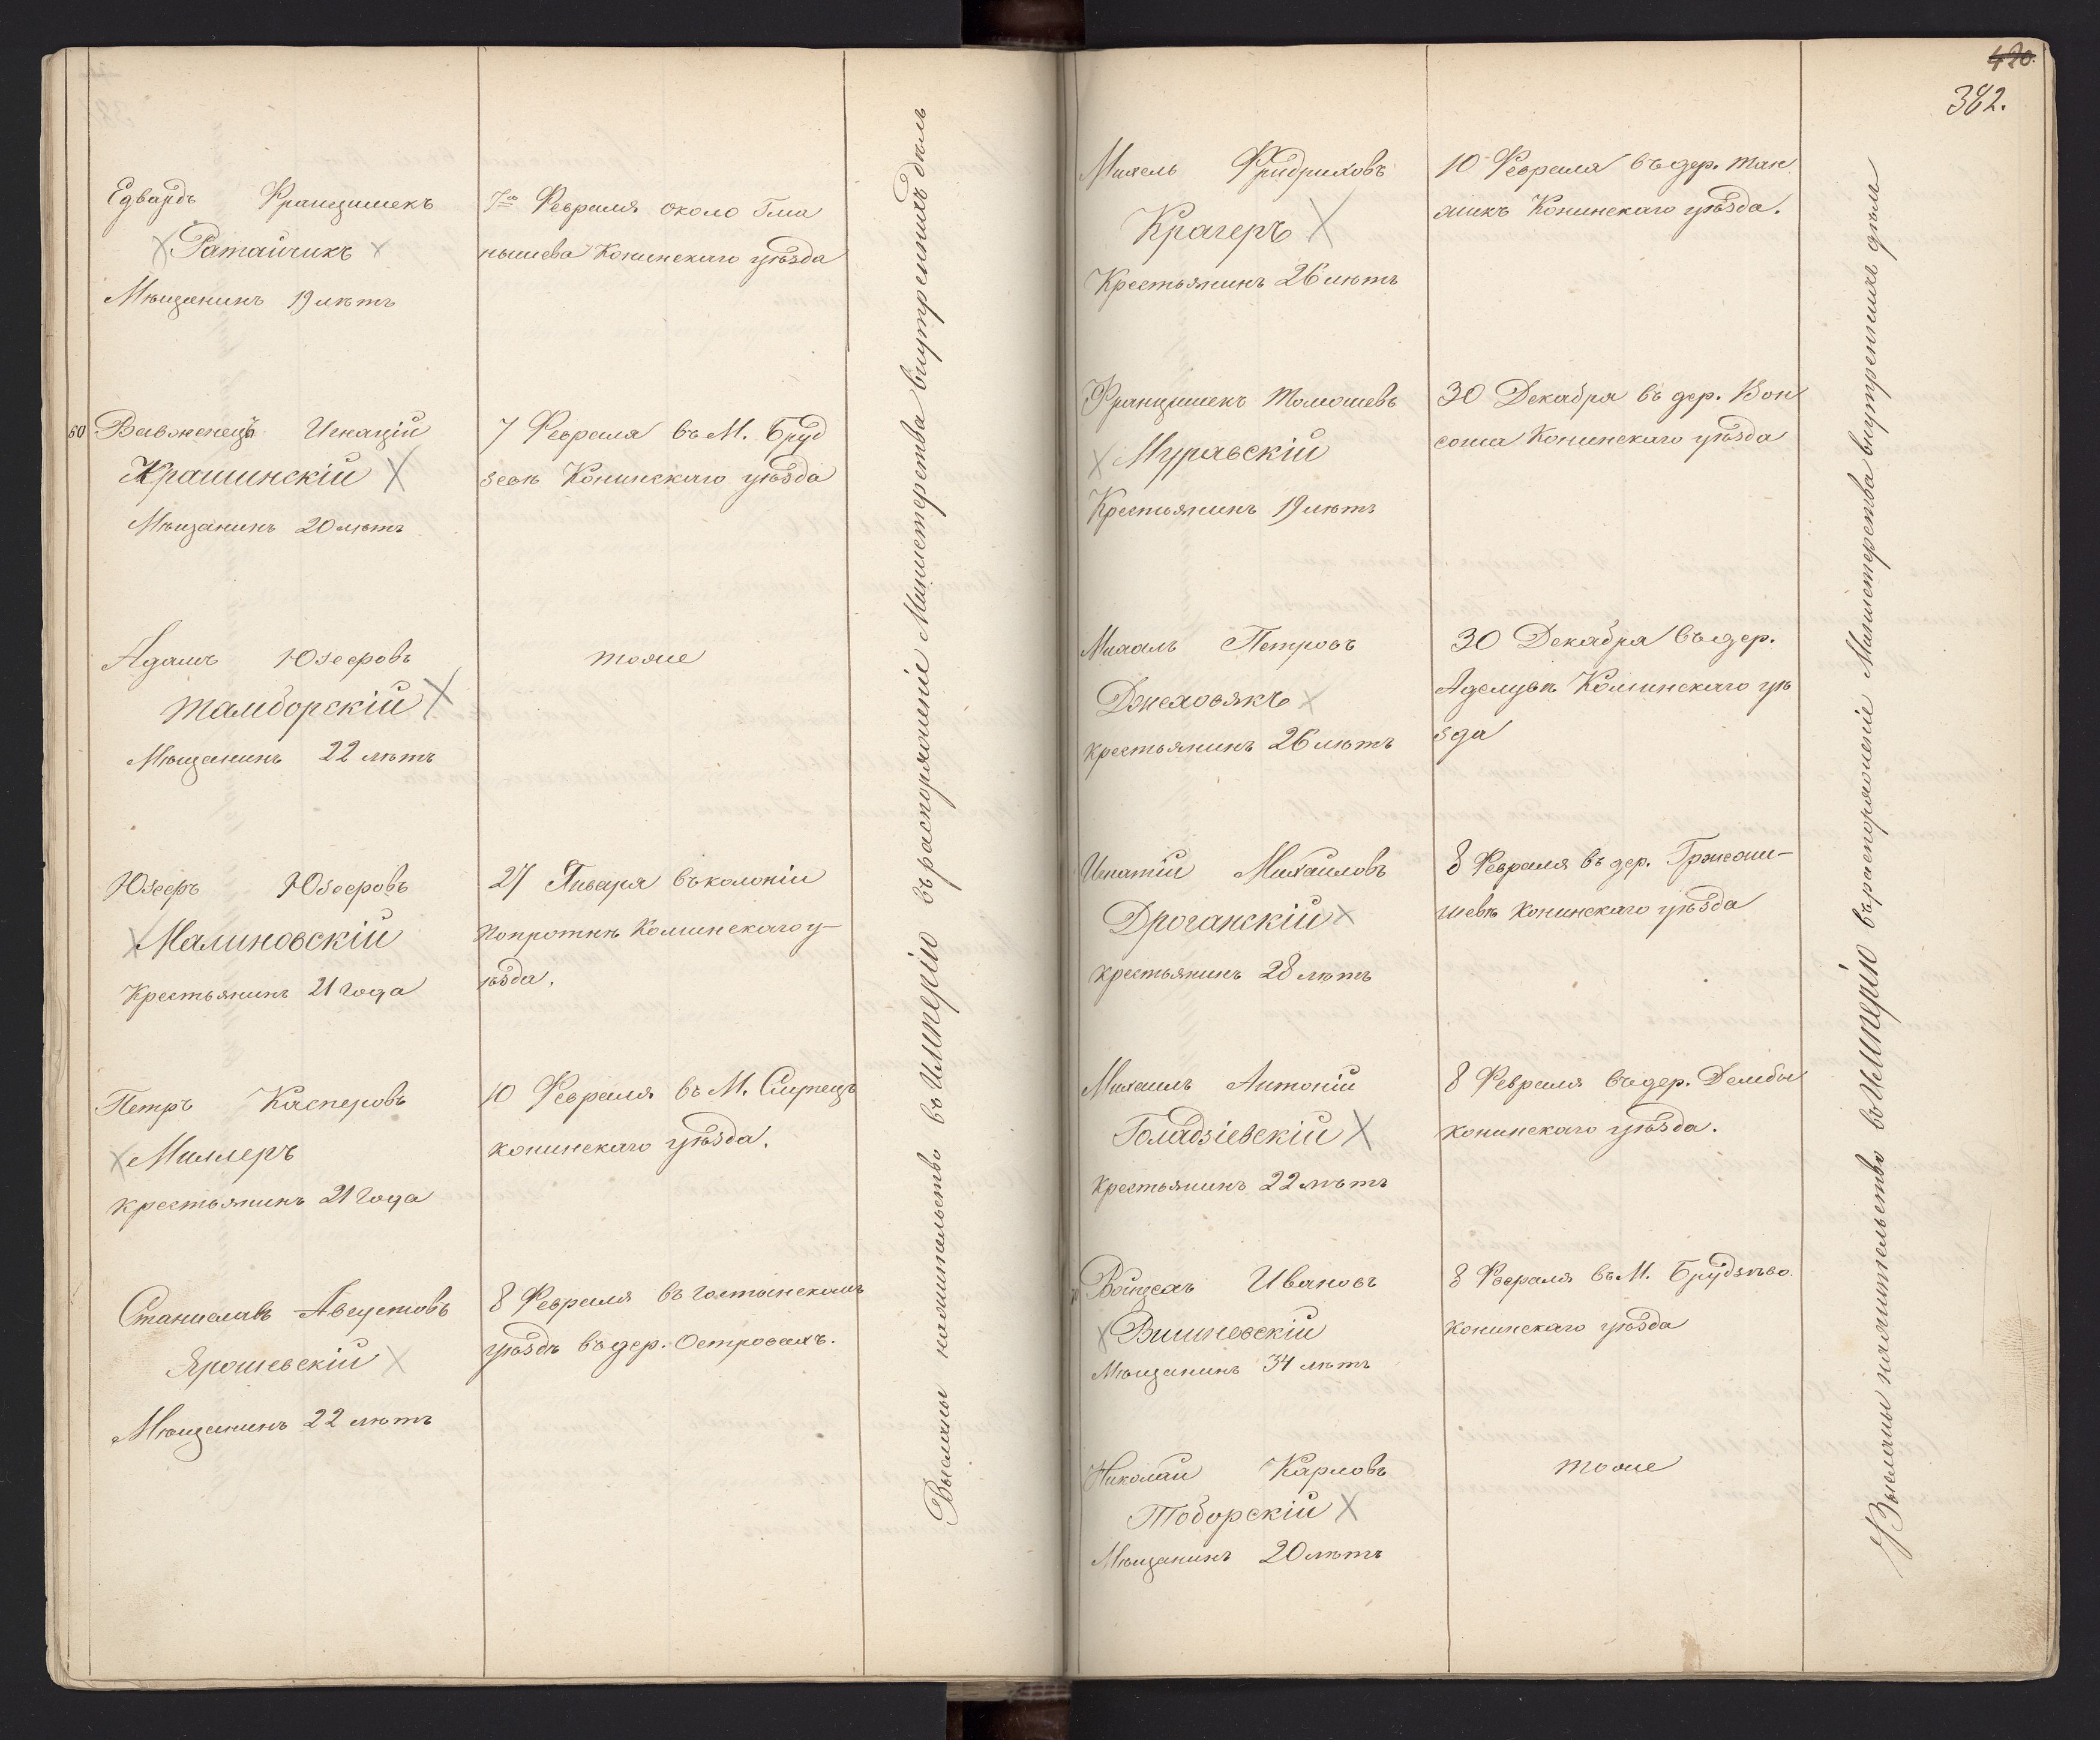 Едвардъ Францишекъ
Ратайчикъ
Мѣщанинъ 19 лѣтъ
7го Февраля около Гма
нышева Конинскаго уѣзда
60
Вавженецъ Игнацiй
Крашинскiй
Мѣщанинъ 20 лѣтъ
7 Февраля въ М. Бруд
зевѣ Конинскаго уѣзда
Адамъ Юзефовъ
Тамборскiй
Мѣщанинъ 22 лѣтъ
тоже
Юзефъ Юзефовъ
Малиновскiй
Крестьянинъ 21 года
27 Января въ колонiи
Попроткѣ Конинскаго у-
ѣзда.
Петръ Касперовъ
Миллеръ
крестьянинъ 21 года
10 Февраля въ М. Слупецъ
конинскаго уѣзда.
Станиславъ Августовъ
Ярошевскiй
Мѣщанинъ 22 лѣтъ
8 Февраля въ гостынскомъ
уѣздѣ въ дер. Островахъ.
Высланы на жительство въ Имперiю въ распоряженiе Министерства внутреннихъ дѣлъ
420.
382.
Михель Фридриховъ
Крагеръ
Крестьянинъ 26 лѣтъ
10 Февраля въ дер.
Конинскаго уѣзда.
Францишекъ Томашевъ
Муравскiй
Крестьянинъ 19 лѣтъ
30 Декабря въ дер. Вон
соша Конинскаго уѣзда
Михалъ Петровъ
Джеховякъ
крестьянинъ 26 лѣтъ
30 Декабря въ дер.
Конинскаго уѣ
зда
Игнатiй Михайловъ
Дроганскiй
крестьянинъ 28 лѣтъ
8 Февраля въ дер. Гржеми-
шевѣ Конинскаго уѣзда
Михаилъ Антонiй
Голадзiевскiй
крестьянинъ 22 лѣтъ
8 Февраля въ дер. Дембы
конинскаго уѣзда.
70
Войцехъ Ивановъ
Вишневскiй
Мѣщанинъ 34 лѣтъ
8 Февраля въ М. Брудзѣво
конинскаго уѣзда
Николай Карловъ
Тоборскiй
Мѣщанинъ 20 лѣтъ
тоже
Высланы на жительство въ Имперiю въ распоряженiе Министерства внутреннихъ дѣлъ